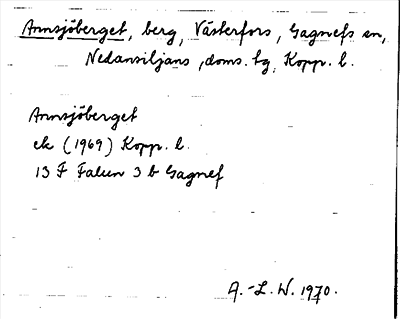 Annsjöberget, berg, Västerfors, Gagnefs sn,
Nedansiljans, doms. tg, Kopp. l.
Annsjöberget
ek (1969) Kopp. l.
13 F Falun 3 b Gagnef
A.-L.W. 1970.